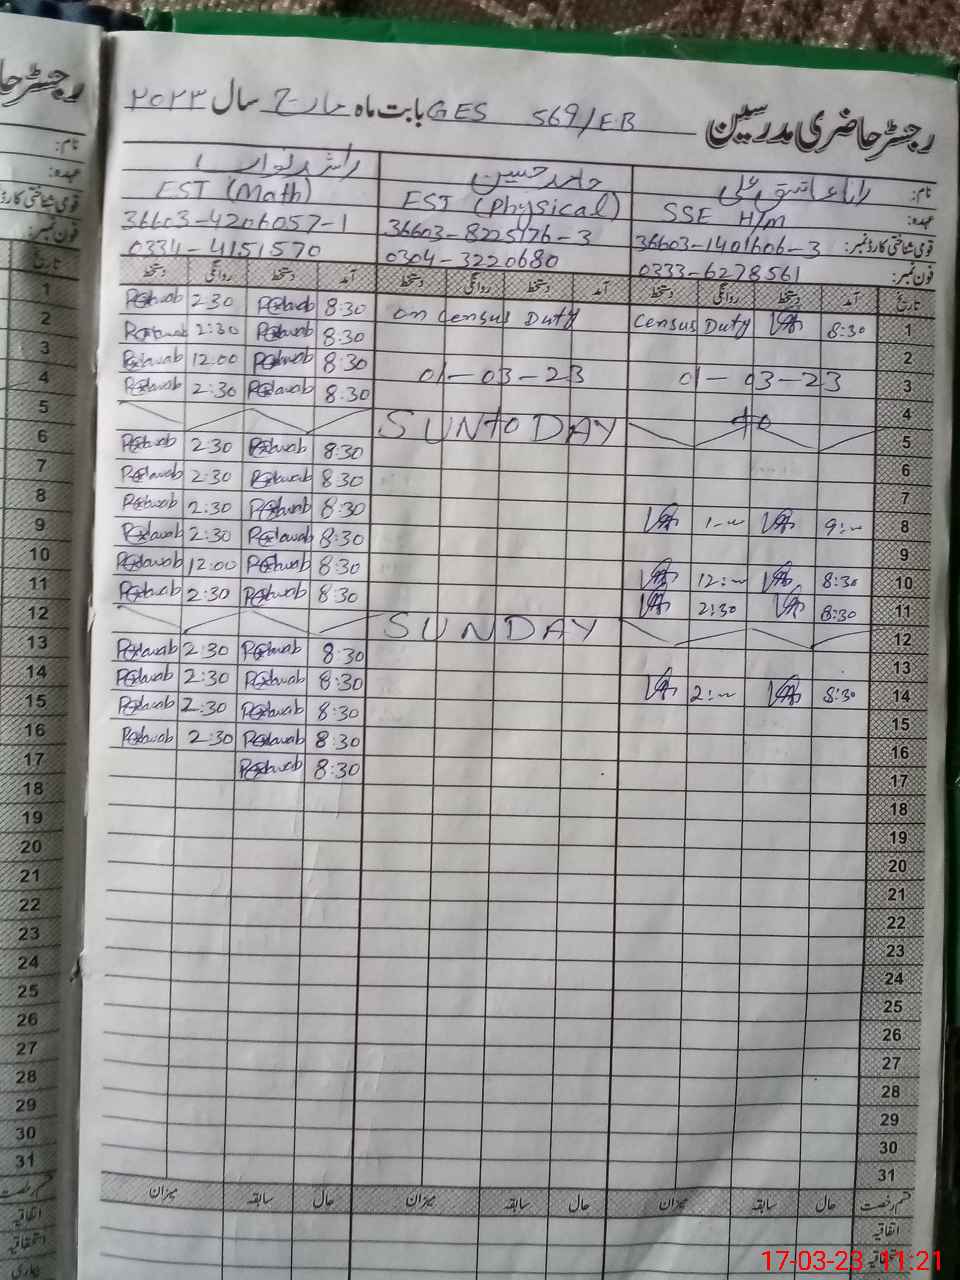 رجسٹر حاضری مدرسین GES 569/EB بابت ماہ مارچ سال ۲۰۲۳
نام: رانا عاشق علی
حامد حسین
راشد نواب
عہدہ: SSE H/M
EST (Physical)
EST (Math)
قومی شناختی کارڈ نمبر: 36603-1401606-3
36603-8225176-3
36603-4206057-1
فون نمبر: 0333-6278561
0304-3220680
0334-4151570
تاریخ آمد دستخط روانگی دستخط آمد دستخط روانگی دستخط آمد دستخط روانگی دستخط تاریخ
1 8:30 Census Duty on Census Duty 8:30 2:30 1
2 8:30 2:30 2
3 01-03-23 01-03-23 8:30 12:00 3
4 to 8:30 2:30 4
5 SUN to DAY 5
6 8:30 2:30 6
7 8:30 2:30 7
8 9:— 1:— 8:30 2:30 8
9 8:30 2:30 9
10 8:30 12:— 8:30 12:00 10
11 8:30 2:30 8:30 2:30 11
12 SUNDAY 12
13 8:30 2:30 13
14 8:30 2:— 8:30 2:30 14
15 8:30 2:30 15
16 8:30 2:30 16
17 8:30 17
18 18
19 19
20 20
21 21
22 22
23 23
24 24
25 25
26 26
27 27
28 28
29 29
30 30
31 31
قسم رخصت حال سابقہ میزان حال سابقہ میزان حال سابقہ میزان قسم رخصت
اتفاقیہ
استحقاقیہ
رجسٹر حا
نام:
عہدہ:
قومی شناختی کارڈ
فون نمبر:
تاریخ
اتفاقیہ
استحقاقیہ
17-03-23 11:21